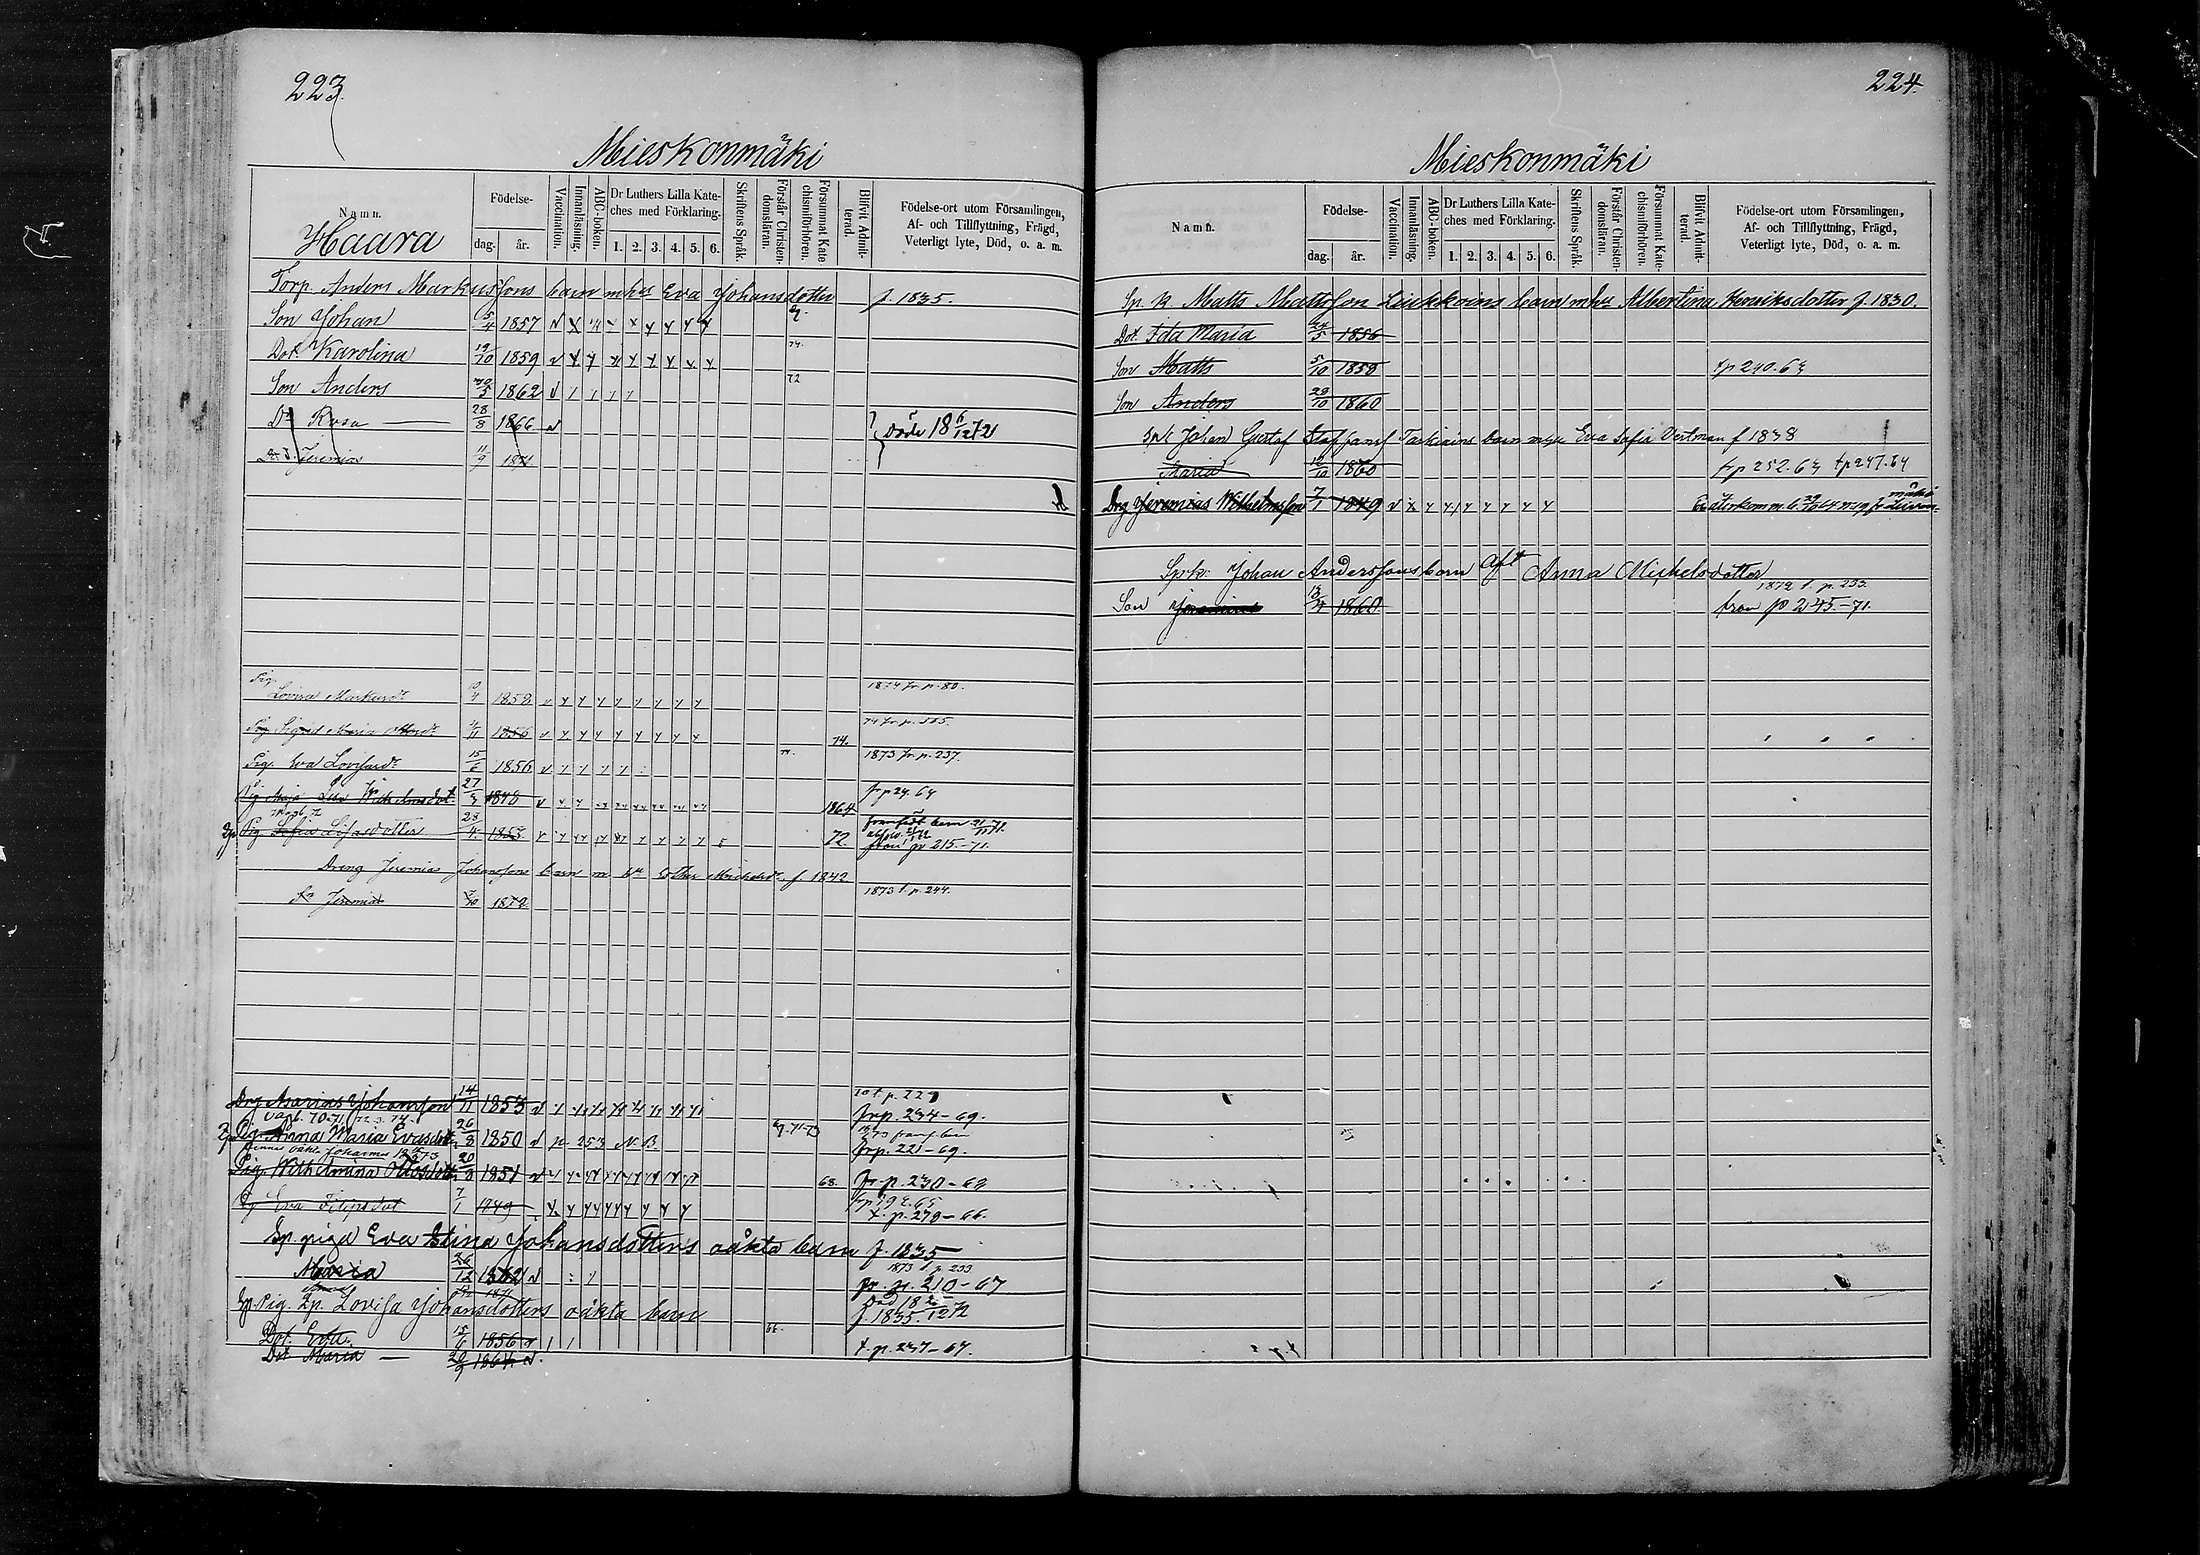 223.
Mieskonmäki
Namn.
Haara
Födelse-
dag. år.
Vaccination.
Innanläsning.
ABC-boken.
Dr Luthers Lilla Kate-
ches med Förklaring.
1. 2. 3. 4. 5. 6.
Skriftens Språk.
Förstår Christen-
domsläran.
Försummat Kate-
chismiförhören.
Blifvit Admit-
terad.
Födelse-ort utom Församlingen,
Af- och Tillflyttning, Frägd,
Veterligt lyte, Död, o. a. m.
Torp. Anders Markussons barn m hu Eva Johansdotter f. 1835.
Son Johan 5/4 1857
Dot. Karolina 19/10 1859 74.
Son Anders 1862 72
Dr Rosa 28/8 1866
Döde 18 6/12 72
Jeremias 11/9 1871
Pig. Lovisa Markusdr 10/4 1858 1874 fr. p. 80.
Pig Sigrid Maria 1856 74.
Pig. Eva Lovisasdr 15/6 1856 74. 1873 fr. p. 237.
Pig Maja Lisa Wilhelmsdot. 27/3 1848 1864 fr p 24. 64
Pig Sofia Lisasdotter 23/4 1853 72. från p 215.-71.
Dreng Jeremias Johanssons barn m hu Esther Michelsdr f. 1842
Sn Jeremias 7/10 1872 1873 t. p. 244.
Drg Asarias Johansson 14/11 1853 frp. 234-69.
Pig. Anna Maria Evasdot. 26/8 1850 p. 253 N.B. frp. 221-69.
Pig. Wilhelmina Ottosdott. 20/9 1851 68. fr. p. 230-69
Pg Eva Filipsdot 7/1 1849 t. p. 279-66.
Sp. piga Eva Stina Johansdotters oäkta barn f. 1835
Maria 26/12 1862 1873 t. p. 233
fr. p. 210-67
Sp. Pig. Lovisa Johansdotters oäkta barn f. 1835.
Dot. Eva. 15/6 1856 66.
Dot Maria 20/9 1864 t. p. 237-67.
224.
Mieskonmäki
Namn.
Födelse-
dag. år.
Vaccination.
Innanläsning.
ABC-boken.
Dr Luthers Lilla Kate-
ches med Förklaring.
1. 2. 3. 4. 5. 6.
Skriftens Språk.
Förstår Christen-
domsläran.
Försummat Kate-
chismiförhören.
Blifvit Admit-
terad.
Födelse-ort utom Församlingen,
Af- och Tillflyttning, Frägd,
Veterligt lyte, Död, o. a. m.
Sp. k. Matts Mattsson Liukkoins barn m hu Albertina Henriksdotter f 1830.
Dot. Ida Maria 24/5 1856
Son Matts 5/10 1858 tp 240. 63
Son Anders 29/10 1860
Spk Johan Gustaf Staffanss barn m hu Eva Sofia f 1838
Maria 12/10 1860 fr p 252. 63 tp 247. 64
Drg Jeremias Wilhelmsson 7/1 1849
Spk: Johan Anderssons barn Aft Anna Michelsdotter
1872 t. p. 233.
Son Jeremias 13/4 1860 från p 245.-71.